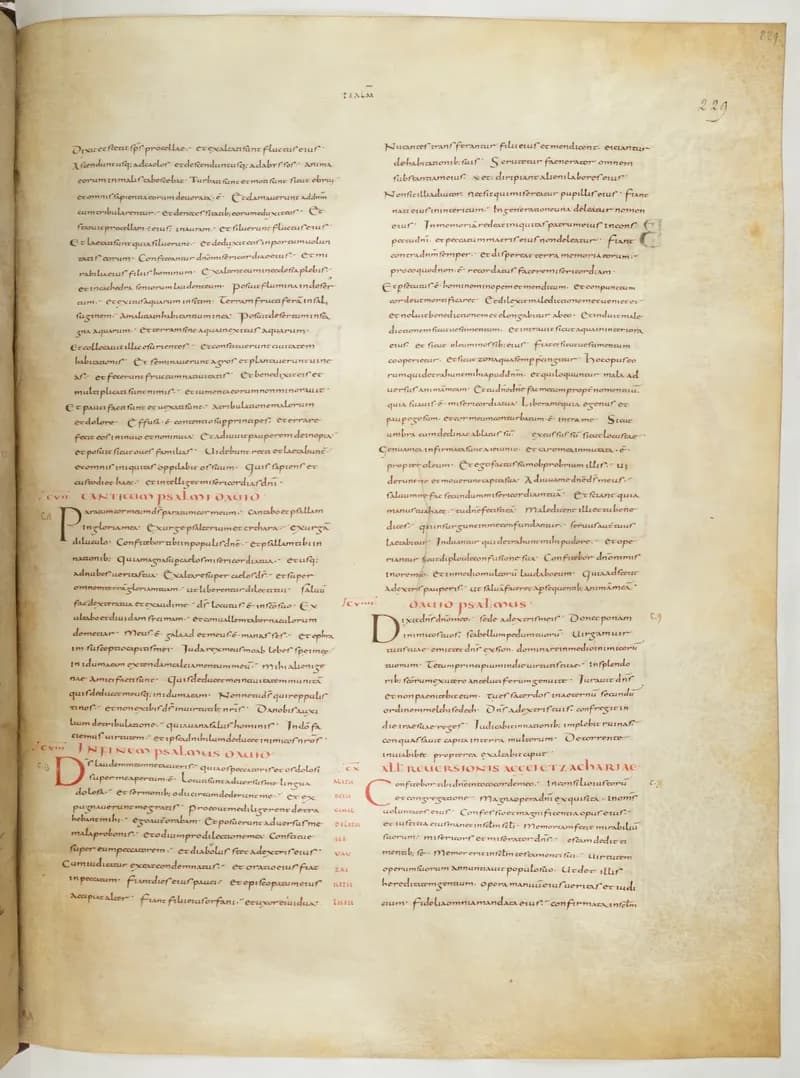 PSALM̄
229
Dixit et stetit sp̄s procellae · et exaltati sunt fluctus eius ·
Ascendunt usq; ad caelos · et descendunt usq; ad abyssos · Anima
eorum in malis tabescebat · Turbati sunt et moti sunt sicut ebrius
et omnis sapientia eorum deuorata ē · Et clamauerunt ad dnm
cum tribularentur · et de necessitatib; eorum eduxit eos · Et
statuit procellam eius in auram · et siluerunt fluctus eius
Et laetati sunt quia siluerunt · Et deduxit eos in portum uolun
tatis eorum · Confiteantur dnō misericordiae eius · Et mi
rabilia eius filiis hominum · Exaltent eum in ecclesia plebis
et in cathedra seniorum laudent eum · Posuit flumina in deser
tum · et exitus aquarum in sitim · Terram fructiferā in sal
suginem · A malitia inhabitantium in ea · Posuit desertum in sta
gna aquarum · Et terram sine aqua in exitus aquarum ·
Et collocauit illic esurientes · et constituerunt ciuitatem
habitationis · Et seminauerunt agros et plantauerunt uine
as · et fecerunt fructum natiuitatis · Et benedixit eis et
multiplicati sunt nimis · et iumenta eorum non minorauit ·
Et pauci facti sunt et uexati sunt · A tribulatione malorum
et dolore · Effusa ē contentio sup principes · et errare
fecit eos in inuio et non in uia · Et adiuuit pauperem de inopia
et posuit sicut oues familias · Uidebunt recti et laetabunt̄
et omnis iniquitas oppilabit os suum · Quis sapiens et
custodiet haec · et intelliget misericordias dn̄i ·
CVII CANTICUM PSALMI DAUID
Paratum cor meum d̄s paratum cor meum · cantabo et psallam
in gloria mea · Exurge psalterium et cythara · exurgā
diluculo · Confitebor tibi in populis dn̄e · et psallam tibi in
nationib; · Quia magna sup caelos misericordia tua · et usq;
ad nubes ueritas tua · Exaltare super caelos d̄s · et super
omnem terrā gloria tua · ut liberentur dilecti tui · saluū
fac dextera tua et exaudi me · d̄s locutus ē in sc̄o suo · Ex
ultabo et diuidam sicimam · et conuallem tabernaculorum
dimetiar · Meus ē galaad et meus ē manasses · et ephra
im susceptio capitis mei · Juda rex meus moab lebes spei meae
In idumaeam extendam calciamentum meū · Mihi alienige
nae amici facti sunt · Quis deducet me in ciuitatem munitā
quis deducet me usq; in idumaeam · Nonne tu d̄s qui reppulis
ti nos · et non exibis d̄s in uirtutib; nr̄is · Da nobis auxi
lium de tribulatione · quia uana salus hominis · In dō fa
ciemus uirtutem · et ipse ad nihilum deducet inimicos nr̄os ·
CVIII IN FINEM PSALMUS DAUID
D̄s laudem meam ne tacueris · quia os peccatoris et os dolosi
super me apertum ē · Locuti sunt aduersum me lingua
dolosa · et sermonib; odii circumdederunt me · et ex
pugnauerunt me gratis · Pro eo ut me diligerent detra
hebant mihi · ego autē orabam · Et posuerunt aduersus me
mala pro bonis · et odium pro dilectione mea · Constitue
super eum peccatorem · et diabolus stet a dextris eius ·
Cum iudicatur exeat condemnatus · et oratio eius fiat
in peccatum · Fiant dies eius pauci · et episcopatum eius
accipiat alter · Fiant filii eius orfani · et uxor eius uidua
Nutantes transferantur filii eius et mendicent · eiciantur
de habitationib; suis · Scrutetur faenerator omnem
substantiam eius · et diripiant alieni labores eius ·
Non sit illi adiutor · nec sit qui misereatur pupillis eius · Fiant
nati eius in interitum · In generatione una deleatur nomen
eius · In memoriā redeat iniquitas patrum eius in cons
pectu dn̄i · et peccatum matris eius non deleatur · Fiant
contra dnm̄ semper · et dispereat de terra memoria eorum ·
pro eo quod non ē recordatus facere misericordiam ·
Et persecutus ē hominem inopem et mendicum · et conpunctum
corde mortificare · Et dilexit maledictionem et ueniet ei ·
et noluit benedictionem et elongabitur ab eo · Et induit male
dictionem sicut uestimentum · et intrauit sicut aqua in interiora
eius · et sicut oleum in ossib; eius · Fiat ei sicut uestimentum
quo operietur · et sicut zona qua semp̄ cingitur · Hoc opus eo
rum qui detrahunt mihi apud dnm̄ · et qui loquuntur mala ad
uersus animā meam · Et tu dn̄e dn̄e fac mecum propt̄ nomen tuū ·
quia suauis ē misericordia tua · Libera me quia egenus et
pauper ego sum · et cor meum conturbatum ē intra me · Sicut
umbra cum declinat ablatus sū · excussus sū sicut locustae ·
Genua mea infirmata sunt a ieiunio · et caro mea inmutata ē
propter oleum · Et ego factus sum obprobrium illis · ui
derunt me et mouerunt capita sua · Adiuua me dn̄e d̄s meus ·
saluum me fac secundum misericordiam tuā · Et sciant quia
manus tua haec · tu dn̄e fecisti eā · Maledicent illi et tu bene
dices · qui insurgunt in me confundantur · seruus autē tuus
laetabitur · Induantur qui detrahunt mihi pudore · et ope
riantur sicut diploide confusione sua · Confitebor dn̄o nimis
in ore meo · et in medio multorū laudabo eum · Quia adstetit
a dextris pauperis · ut saluā faceret a persequentib; animā meā ·
CVIIII DAUID PSALMUS ·
Dixit dn̄s dn̄o meo · sede a dextris meis · Donec ponam
inimicos tuos · scabellum pedum tuorū · Uirgam uir
tutis tuae emittet dn̄s ex sion · dominare in medio inimicorū
tuorum · Tecum principium in die uirtutis tuae · in splendo
rib; sc̄orum ex utero ante luciferum genui te · Jurauit dn̄s
et non paenitebit eum · Tu es sacerdos in aeternū secundū
ordinem melchisedech · Dn̄s a dextris tuis · confregit in
die irae suae reges · Iudicabit in nationib; implebit ruinas
conquassabit capita in terra multorum · De torrente
in uia bibet · propterea exaltabit caput
CX ALL REUERSIONIS AGGEI ET ZACHARIAE
Confitebor tibi dn̄e in toto corde meo · In consilio iustorū
et congregatione · Magna opera dn̄i exquisita · in om̄s
uoluntates eius · Confessio et magnificentia opus eius ·
et iustitia eius manet in sclm̄ scli · Memoriam fecit mirabiliū
suorum · misericors et miserator dn̄s · escam dedit ti
mentib; se · Memor erit in sclm̄ testamenti sui · Uirtutem
operum suorum annuntiauit populo suo · Ut det illis
hereditatem gentium · opera manuū eius ueritas et iudi
cium · Fidelia omnia mandata eius · confirmata in sclm̄